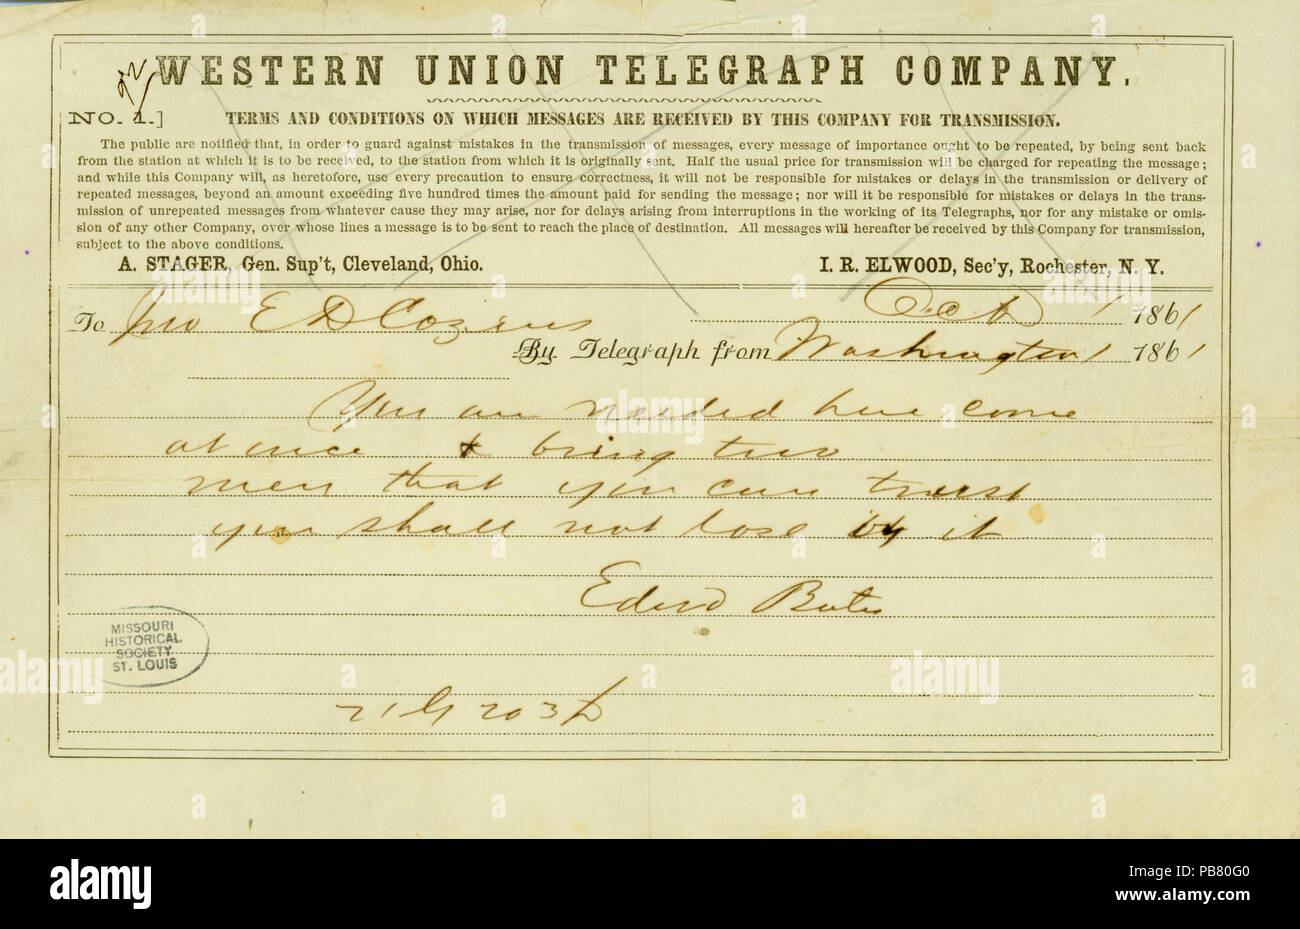 WESTERN UNION TELEGRAPH COMPANY.
NO. 1.] TERMS AND CONDITIONS ON WHICH MESSAGES ARE RECEIVED BY THIS COMPANY FOR TRANSMISSION.
The public are notified that, in order to guard against mistakes in the transmission of messages, every message of importance ought to be repeated, by being sent back
from the station at which it is to be received, to the station from which it is originally sent. Half the usual price for transmission will be charged for repeating the message;
and while this Company will, as heretofore, use every precaution to ensure correctness, it will not be responsible for mistakes or delays in the transmission or delivery of
repeated messages, beyond an amount exceeding five hundred times the amount paid for sending the message; nor will it be responsible for mistakes or delays in the trans-
mission of unrepeated messages from whatever cause they may arise, nor for delays arising from interruptions in the working of its Telegraphs, nor for any mistake or omis-
sion of any other Company, over whose lines a message is to be sent to reach the place of destination. All messages will hereafter be received by this Company for transmission,
subject to the above conditions.
A. STAGER, Gen. Sup't, Cleveland, Ohio. I. R. ELWOOD, Sec'y, Rochester, N. Y.
Oct 1 1861
To Jno E D Cozens
By Telegraph from Washington 1 1861
You are needed here come
at once & bring two
men that you can trust
you shall not lose by it
Edwd Bates
MISSOURI
HISTORICAL
SOCIETY
ST. LOUIS
alamy
alamy
Image ID: PB80G0
www.alamy.com